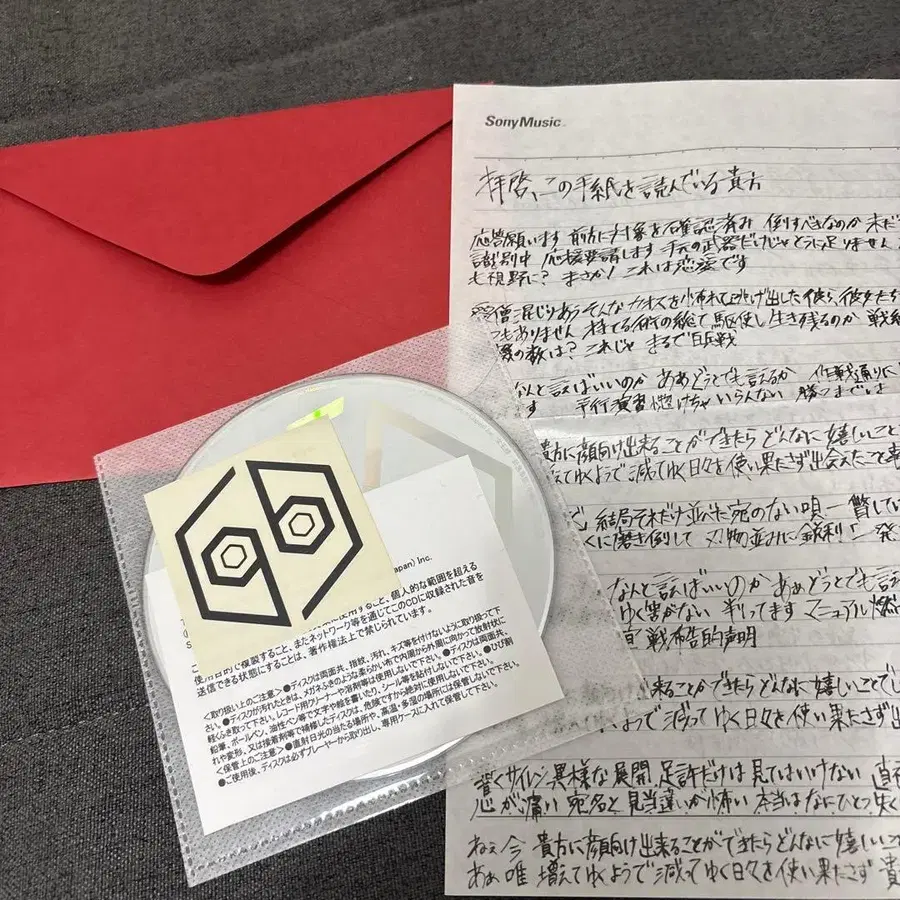 SonyMusic
拝啓、この手紙を読んでいる貴方
応答願います 前方に対象を確認済み 倒すべきなのか 未だ
識別中 応援要請します 手元の武器だけじゃどうに足りません
七視野に? まさか! これは恋変です
愛憎混じりあうそんなカオスを怖れて逃げ出した彼ら、彼女たち
つもありません 持てる術の総て駆使し生き残るのか 戦績
の数は? これじゃ まるで白兵戦
なんと言えばいいのか ああどうとでも言えるか 作戦通りに
す 平行演習 惚けちゃいらんない 勝つまでいざ
貴方に顔向け出来ることができたら どんなに嬉しいこと
えてゆくようで減ってゆく日々を使い果たさず出会えたこと
結局それだけ並べた宛のない唄 一瞥してい
くに磨き倒して 刃物並みに鋭利「一発
なんと言えばいいのか ああどうとでも言
ゆく害がない 判ってます マニュアル燃
宣戦布告的声明
来ることができたら どんなに嬉しいことでし
ようで 減ってゆく日々を使い果たさず出
響くサイレン 異様な展開 足許だけは見てはいけない 直視
心が痛い 宛名と見当違いが怖い 本当はなにひとつ失く
ねえ今 貴方に顔向け出来ることができたらどんなに嬉しいこ
ああ唯 増えてゆくようで減ってゆく日々を使い果たさず 貴
apan) Inc.
使用すること、個人的な範囲を超える
使用目的で複製すること、またネットワーク等を通じてこのCDに収録された音を
送信できる状態にすることは、著作権法上で禁じられています。
<取り扱い上のご注意>●ディスクは両面共、指紋、汚れ、キズ等を付けないように取り扱って下
さい。●ディスクが汚れたときは、メガネふきのような柔らかい布で内周から外周に向かって放射状に
軽くふき取って下さい。レコード用クリーナーや溶剤等は使用しないで下さい。●ディスクは両面共、
鉛筆、ボールペン、油性ペン等で文字や絵を書いたり、シール等を貼付しないで下さい。●ひび割
れや変形、又は接着剤等で補修したディスクは、危険ですから絶対に使用しないで下さい。
<保管上のご注意>●直射日光の当たる場所や、高温・多湿の場所には保管しないで下さい。
●ご使用後、ディスクは必ずプレーヤーから取り出し、専用ケースに入れて保管して下さい。